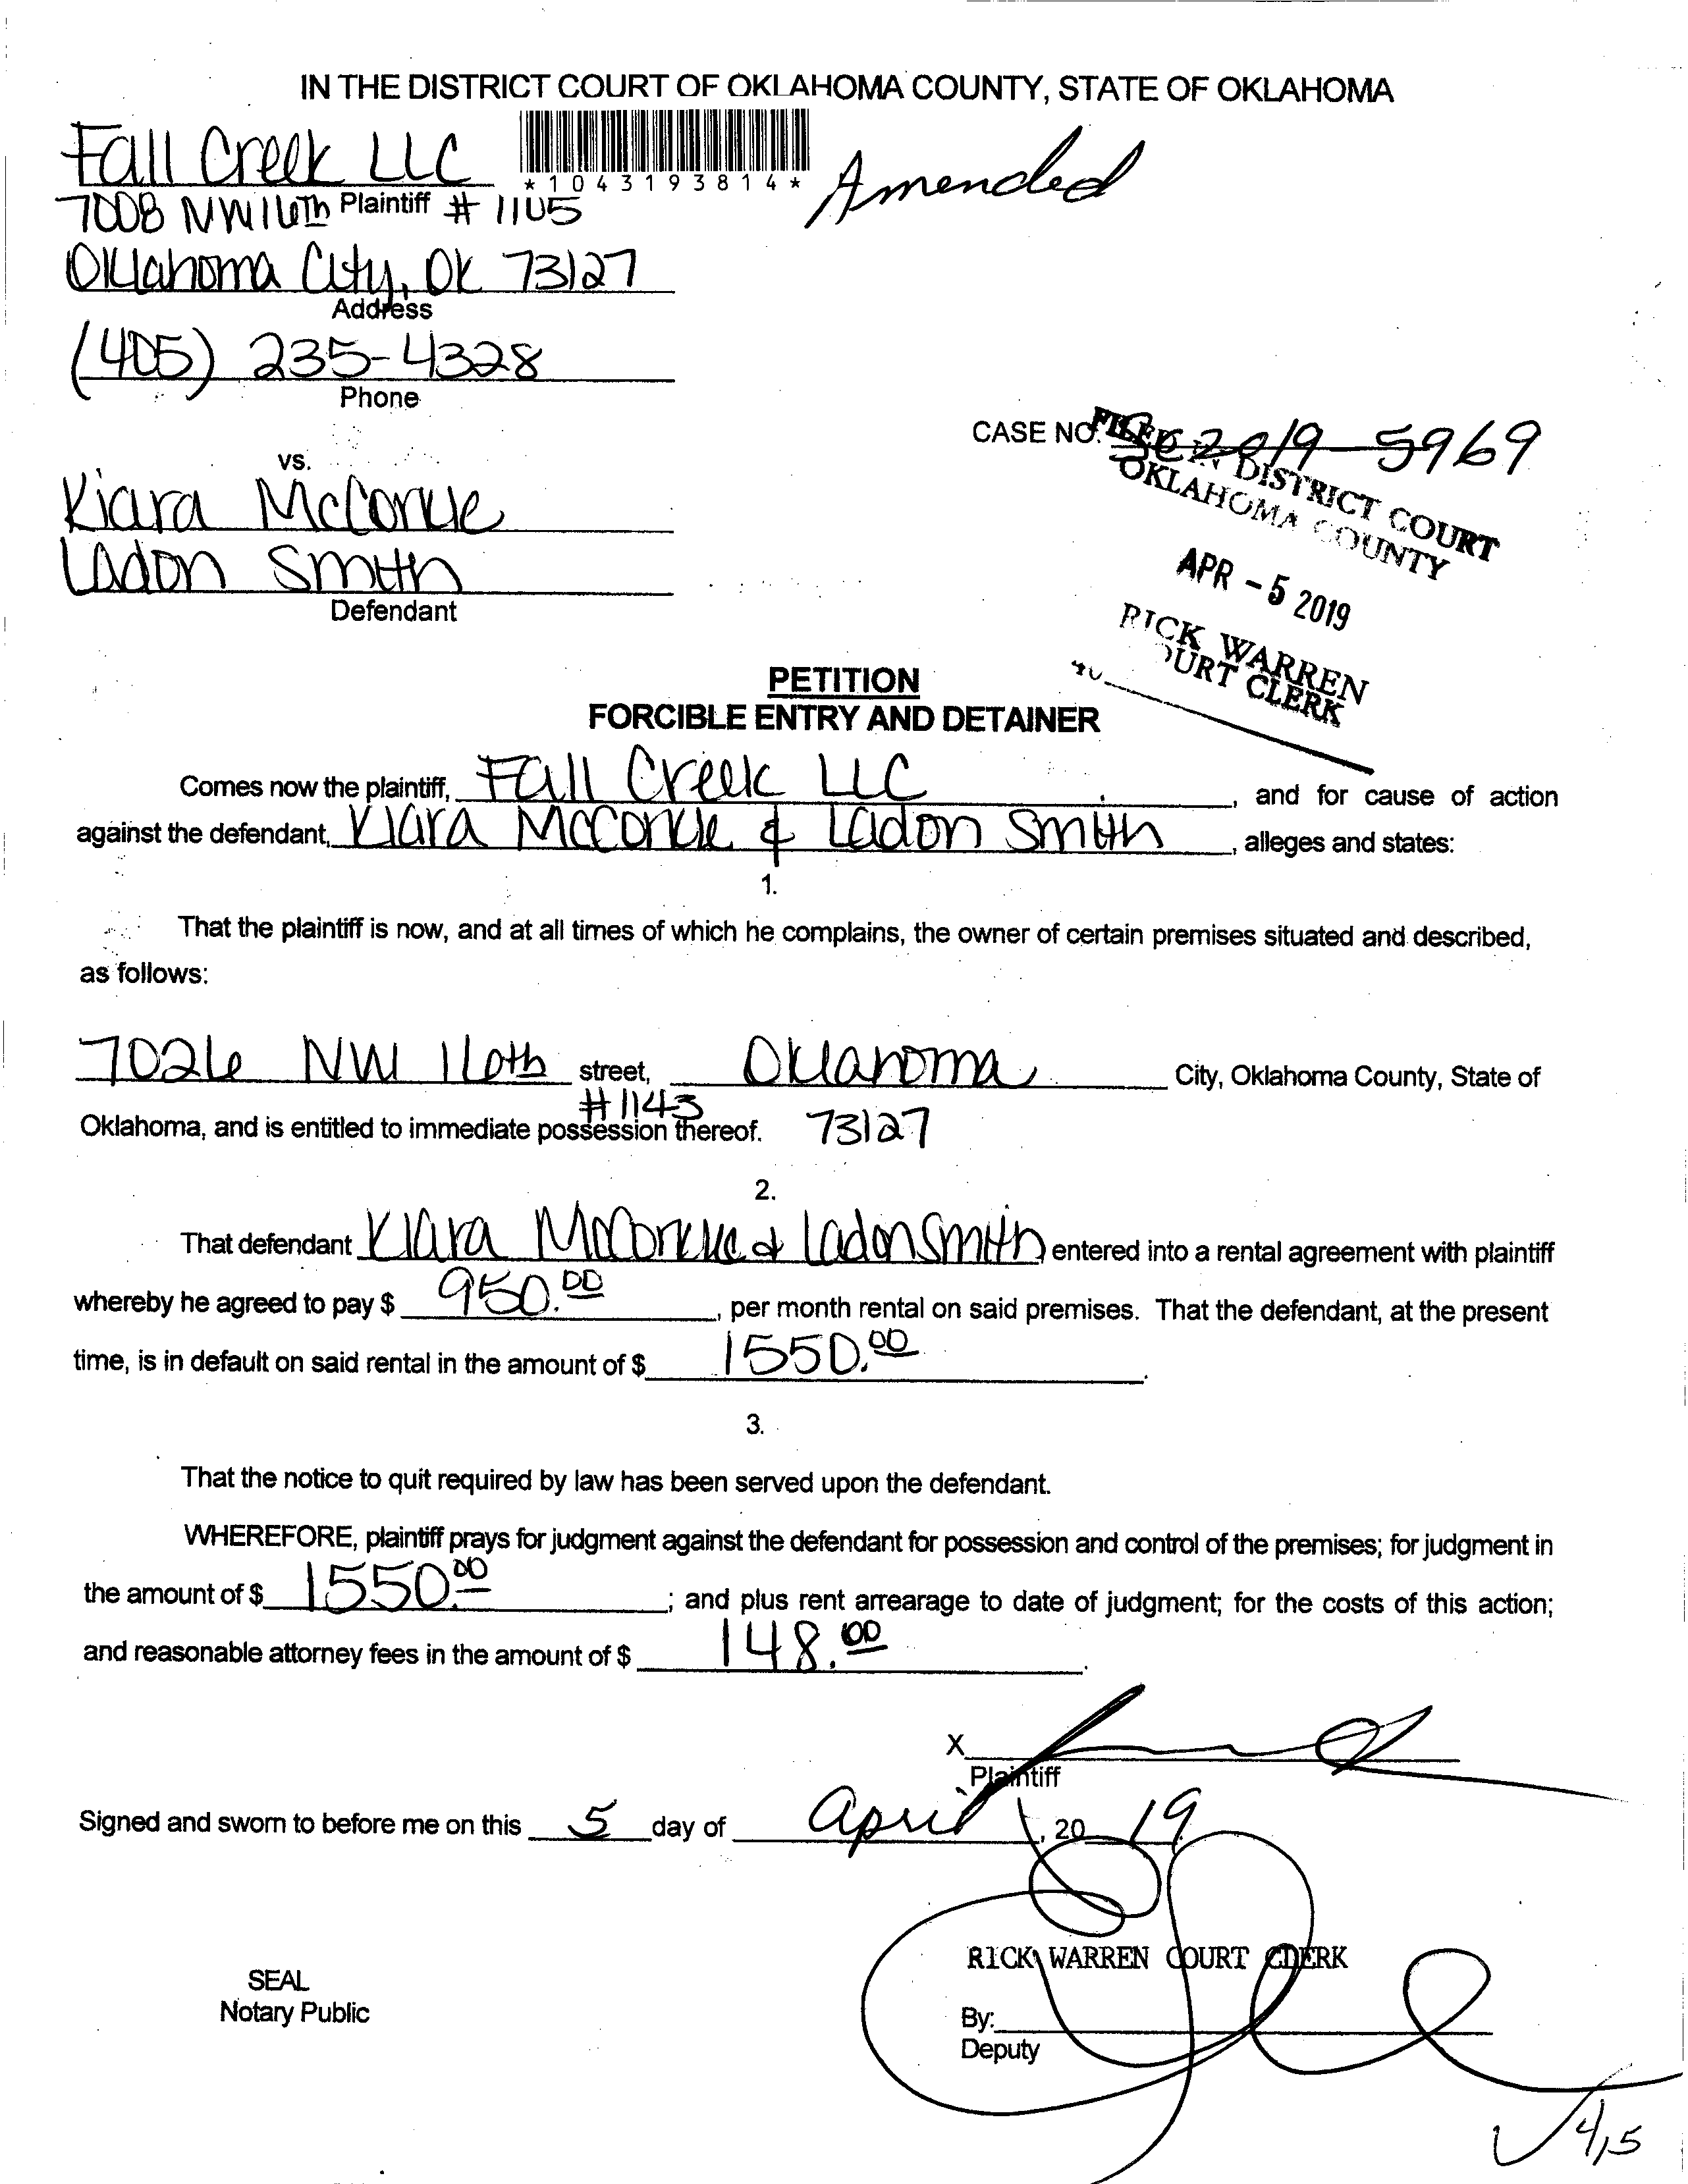 IN THE DISTRICT COURT OF OKLAHOMA COUNTY, STATE OF OKLAHOMA
Fall Creek LLC
*1043193814*
Amended
7008 NW 16th Plaintiff # 1105
Oklahoma City, OK 73127
Address
(405) 235-4328
Phone
CASE NO. SC 2019-5969
FILED IN DISTRICT COURT
OKLAHOMA COUNTY
vs.
Kiara McConkie
Ladon Smith
Defendant
APR - 5 2019
RICK WARREN
COURT CLERK
40
PETITION
FORCIBLE ENTRY AND DETAINER
Comes now the plaintiff, Fall Creek LLC, and for cause of action
against the defendant, Kiara McConkie & Ladon Smith, alleges and states:
1.
That the plaintiff is now, and at all times of which he complains, the owner of certain premises situated and described,
as follows:
7026 NW 16th street, Oklahoma City, Oklahoma County, State of
#1143
Oklahoma, and is entitled to immediate possession thereof. 73127
2.
That defendant Kiara McConkie & Ladon Smith entered into a rental agreement with plaintiff
whereby he agreed to pay $ 950.00, per month rental on said premises. That the defendant, at the present
time, is in default on said rental in the amount of $ 1550.00.
3.
That the notice to quit required by law has been served upon the defendant.
WHEREFORE, plaintiff prays for judgment against the defendant for possession and control of the premises; for judgment in
the amount of $ 1550.00; and plus rent arrearage to date of judgment; for the costs of this action;
and reasonable attorney fees in the amount of $ 148.00.
X
Plaintiff
Signed and sworn to before me on this 5 day of April, 20 19
RICK WARREN COURT CLERK
SEAL
Notary Public
By:
Deputy
4/15